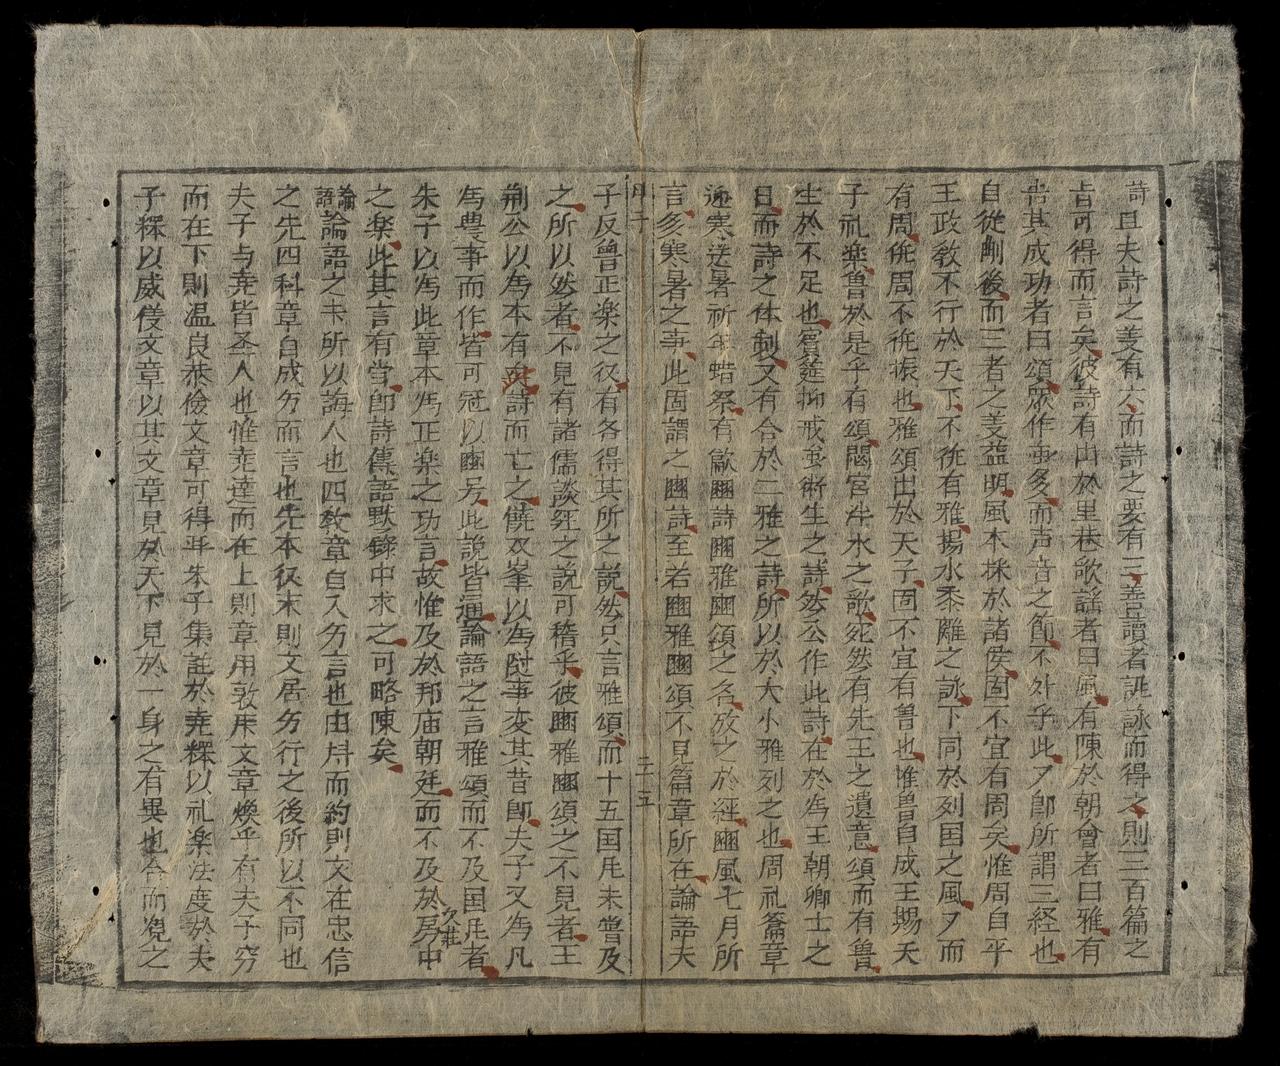 詩且夫詩之义有六而詩之要有三善讀者誰詠而得之則三百篇之
旨可得而言矣彼詩有出於里巷歌謡者曰風有陳於朝會者曰雅有
告其成功者曰頌厥作虽多而声音之節不外乎此即所謂三経也
自従刪後而三者之义益明風本採於諸侯固不宜有周矣惟周自平
王政教不行於天下不能有雅揚水黍離之詠下同於列国之風而
有周能周不能振也雅頌出於天子固不宜有魯也惟魯自成王賜天
子礼楽魯於是乎有頌閟宮泮水之歌然有先王之遺意頌而有魯
生於不足也賓筵抑戒虽衛生之詩然公作此詩在於為王朝卿士之
日而詩之体制又有合於二雅之詩所以於大小雅列之也周礼籥章
迎寒送暑祈年蜡祭有龡豳詩豳雅豳頌之名攷之於經豳風七月所
言多寒暑之事此固謂之豳詩至若豳雅豳頌不見篇章所在論語夫
三十五
子反魯正楽之后有各得其所之説然只言雅頌而十五国风未嘗及
之所以然者不見有諸儒談経之説可稽乎彼豳雅豳頌之不見者王
荆公以為本有此詩而亡之饒双峯以為附事变其昔即夫子又為凡
為農事而作皆可冠以豳另此說皆通論語之言雅頌而不及国风者
朱子以為此章本為正楽之功言故惟及於邦庙朝廷而不及於房中
之楽此其言有当即詩傳語默錄中求之可略陳矣
論語論語之末所以誨人也四教章自入方言也由博而約則文在忠信
之先四科章自成方而言也先本后末則文居方行之後所以不同也
夫子与尭皆圣人也惟尭達而在上則章用敦庸文章煥乎有夫子穷
而在下則温良恭儉文章可得耳朱子集註於尭釋以礼楽法度於夫
子釋以威儀文章以其文章見於天下見於一身之有異也合而覌之